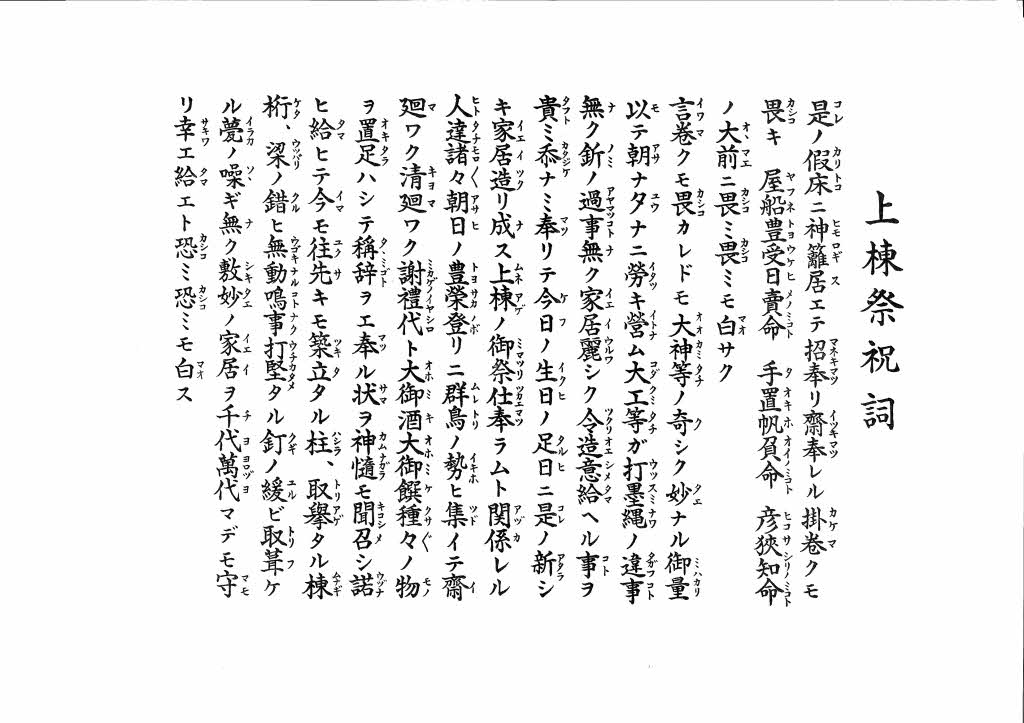 上棟祭祝詞
是ノ假床ニ神籬居エテ招奉リ齋奉レル掛卷クモ
畏キ 屋船豊受日賣命 手置帆負命 彦狹知命
ノ大前ニ畏ミ畏ミモ白サク
言卷クモ畏カレドモ大神等ノ奇シク妙ナル御量
以テ朝ナタナニ勞キ營ム大工等ガ打墨縄ノ違事
無ク釿ノ過事無ク家居麗シク令造意給ヘル事ヲ
貴ミ忝ナミ奉リテ今日ノ生日ノ足日ニ是ノ新シ
キ家居造リ成ス上棟ノ御祭仕奉ラムト関係レル
人達諸々朝日ノ豊榮登リニ群鳥ノ勢ヒ集イテ齋
廻ワク清廻ワク謝禮代ト大御酒大御饌種々ノ物
ヲ置足ハシテ稱辞ヲエ奉ル状ヲ神髄モ聞召シ諾
ヒ給ヒテ今モ往先キモ築立タル柱、取擧タル棟
桁、梁ノ錯ヒ無動鳴事打堅タル釘ノ緩ビ取葺ケ
ル甍ノ噪ギ無ク敷妙ノ家居ヲ千代萬代マデモ守
リ幸エ給エト恐ミ恐ミモ白ス